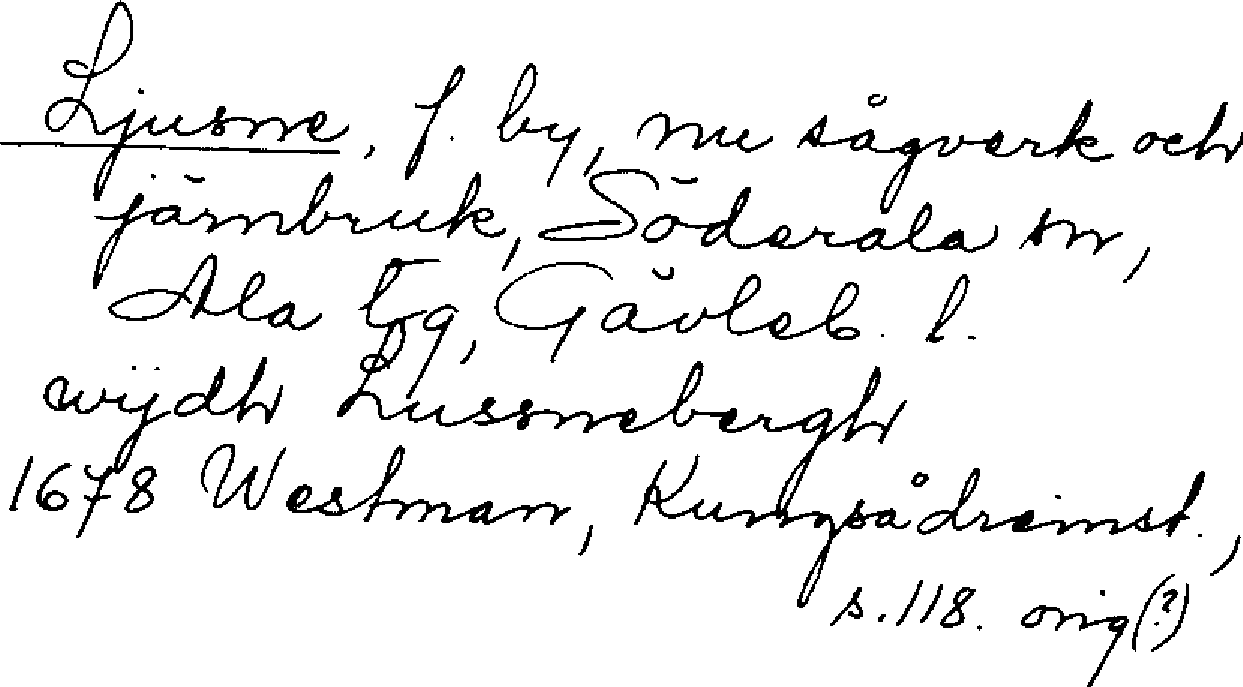 Ljusne, f. by, nu sågverk och
järnbruk, Söderala sn,
Ala tg, Gävleb. l.
wijdh Lussnebergh
1678 Westman, Kungsådreinst.,
s. 118. orig (?)